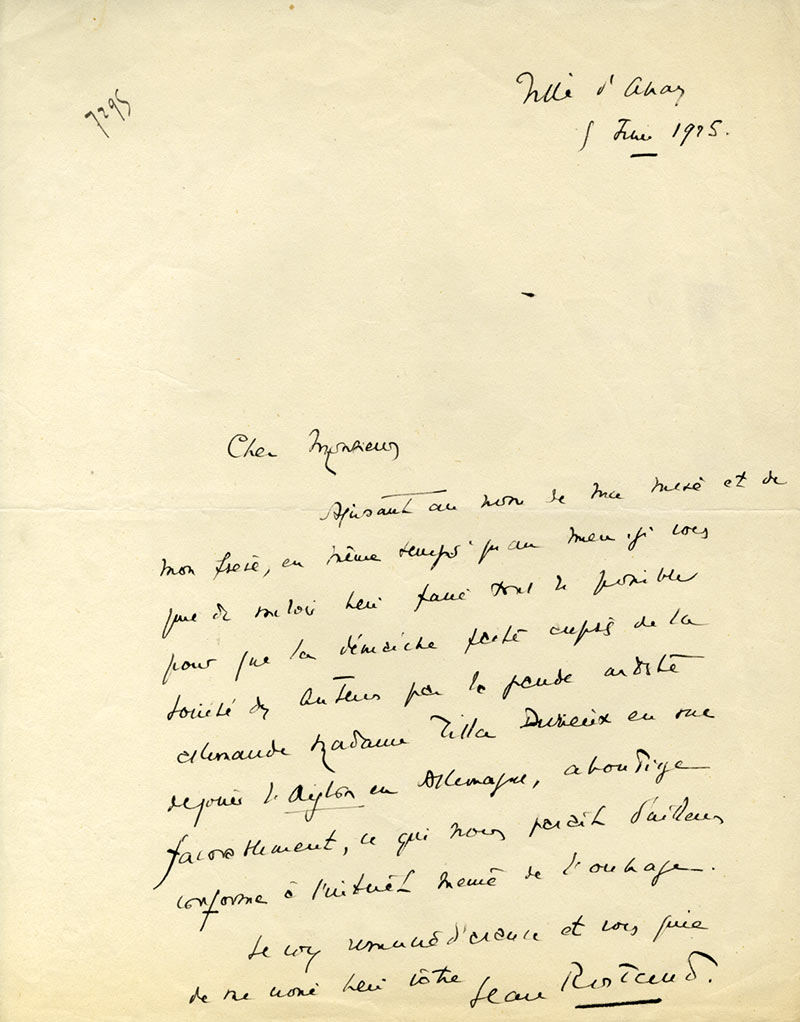 7295
Ville d'Avray
5 Févrie 1925.
Cher Monsieur
Agissant au nom de ma mère et de
mon frère, en même temps qu'au mien, je vous
prie de vouloir bien faire tout le possible
pour que la démarche faite auprès de la
Société des Auteurs par la grande artiste
allemande Madame Tilla Durieux en vue
de jouer l'Aiglon en Allemagne, aboutisse
favorablement, ce qui nous paraît d'ailleurs
conforme à l'intérêt même de l'ouvrage.
Je vous remercie d'avance et vous prie
de me croire bien vôtre
Jean Rostand.